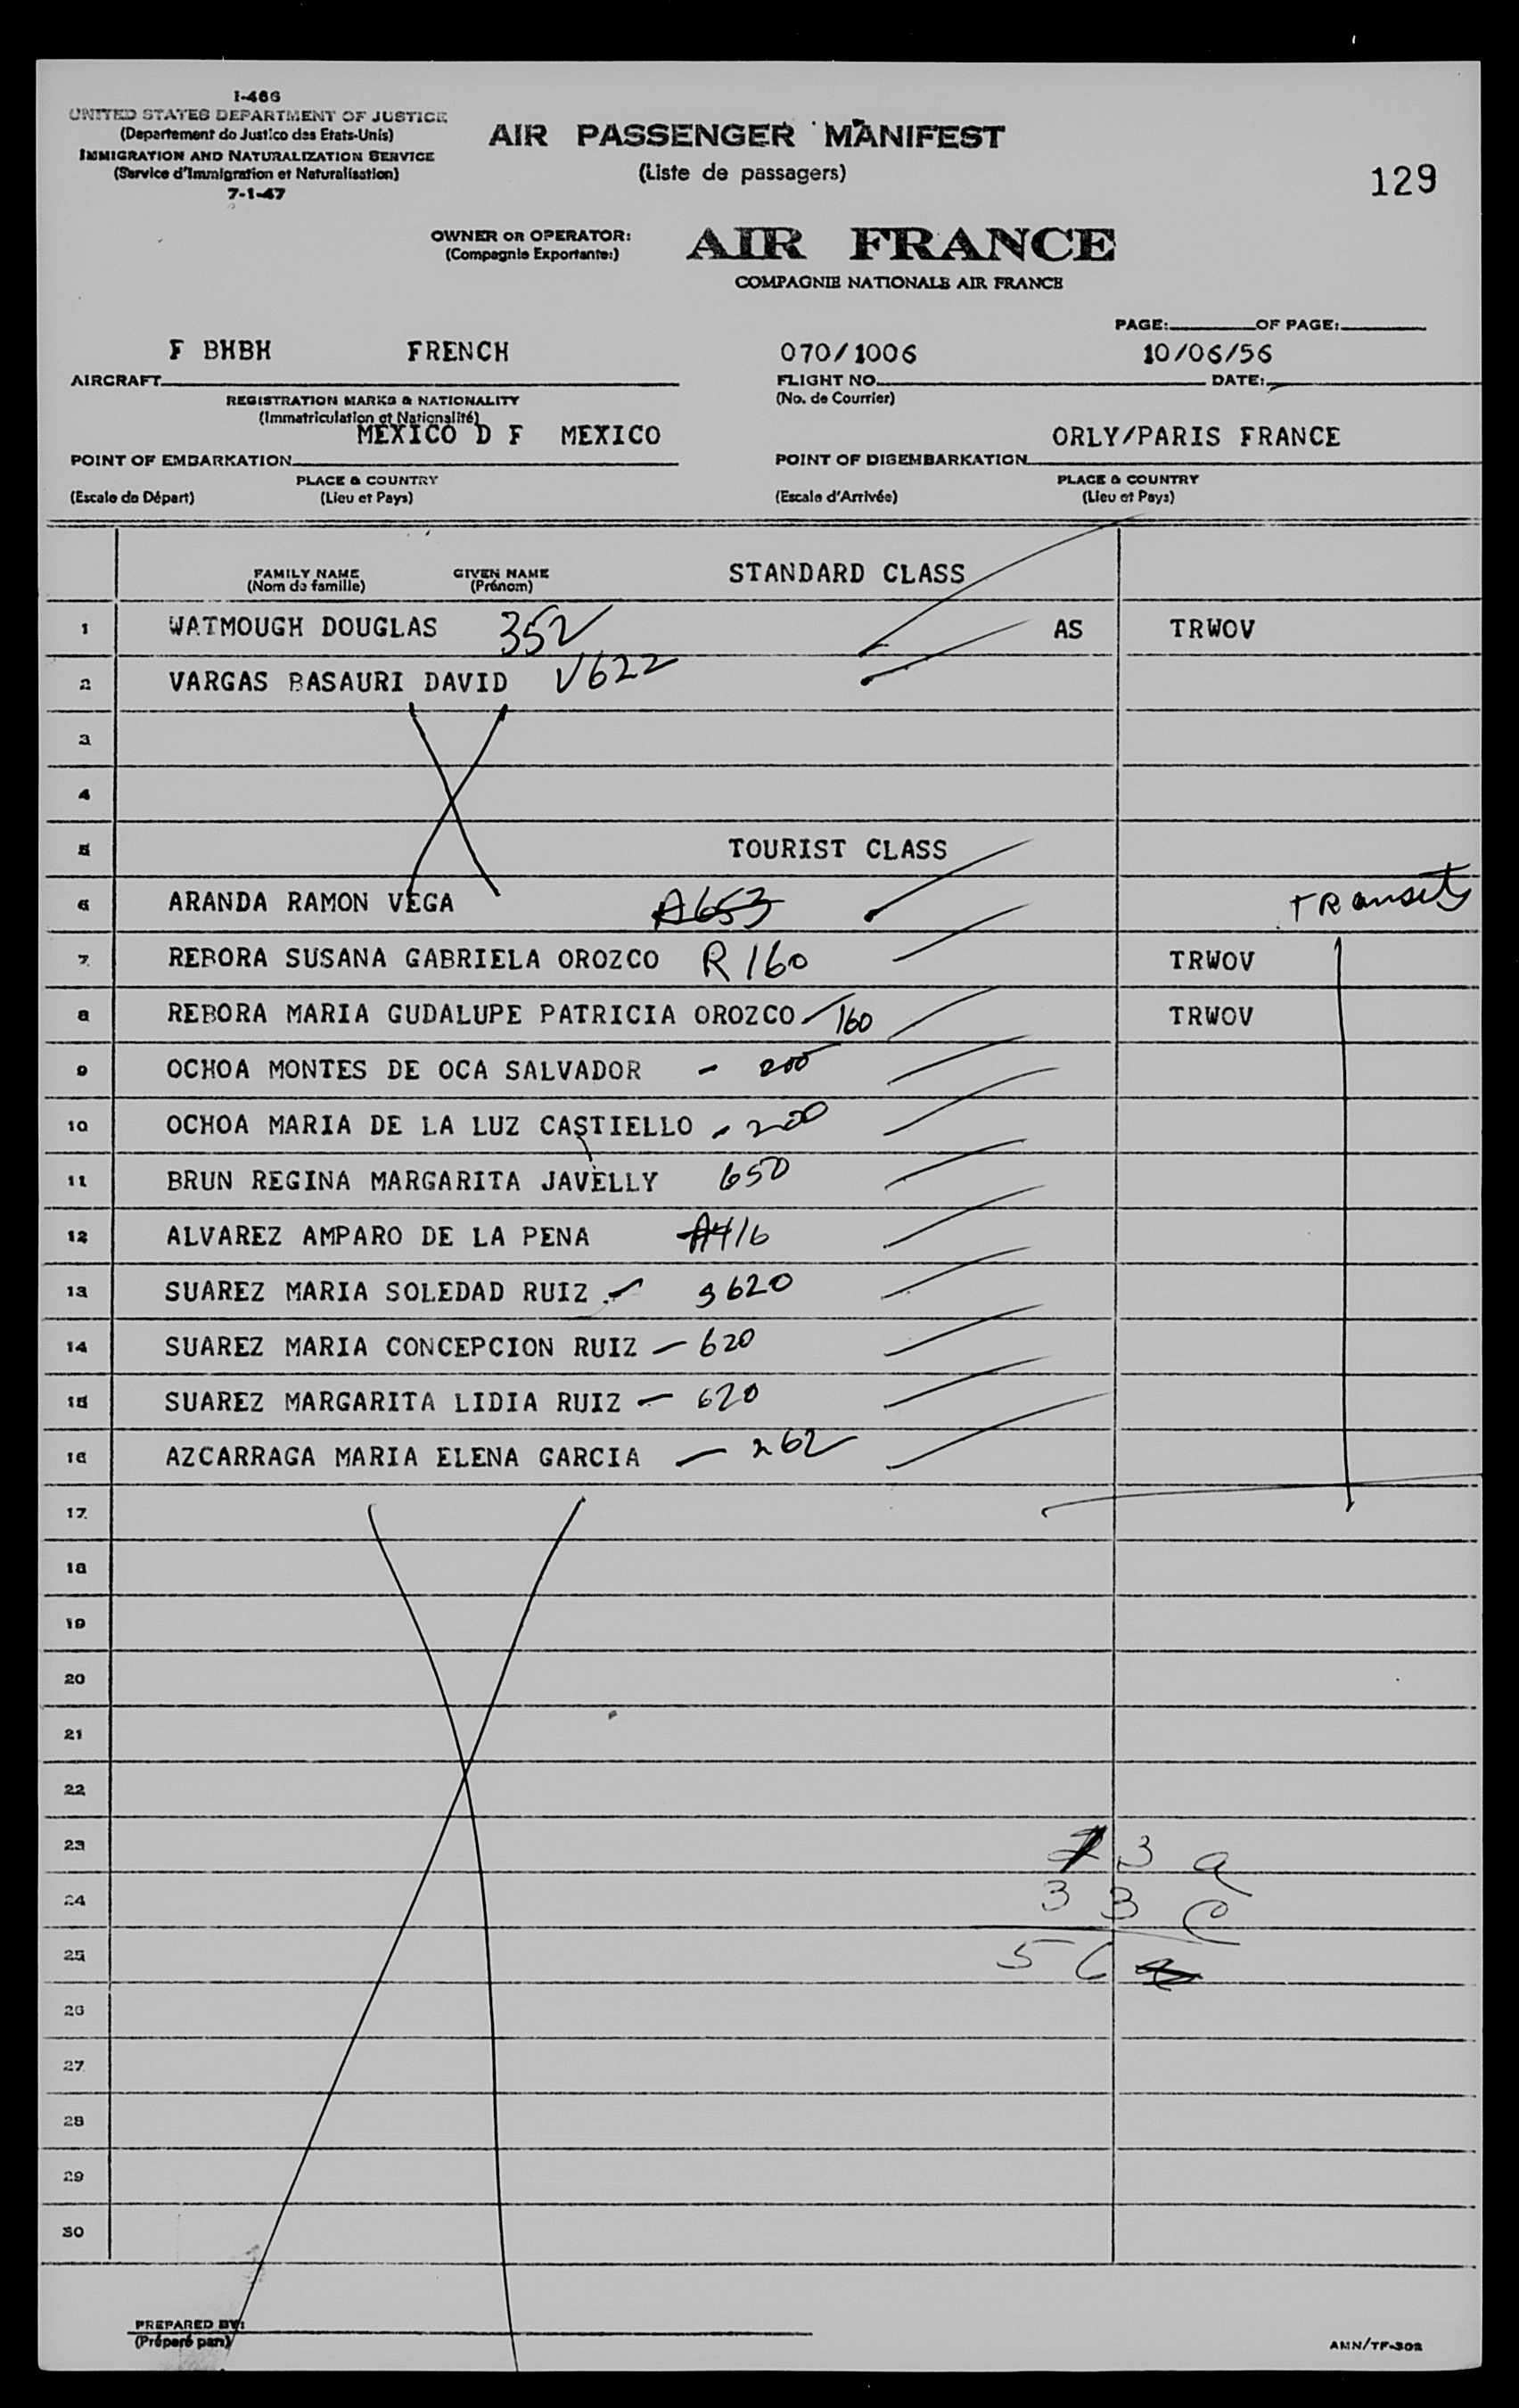 I-466
UNITED STATES DEPARTMENT OF JUSTICE
(Departement de Justice des Etats-Unis)
IMMIGRATION AND NATURALIZATION SERVICE
(Service d'Immigration et Naturalisation)
7-1-47
AIR PASSENGER MANIFEST
(Liste de passagers)
129
OWNER OR OPERATOR:
(Compagnie Exportante:)
AIR FRANCE
COMPAGNIE NATIONALE AIR FRANCE
PAGE: OF PAGE:
F BHBH FRENCH 070/1006 10/06/56
AIRCRAFT FLIGHT NO. DATE:
REGISTRATION MARKS & NATIONALITY (No. de Courrier)
(Immatriculation et Nationalité)
MEXICO D F MEXICO ORLY/PARIS FRANCE
POINT OF EMBARKATION POINT OF DISEMBARKATION
PLACE & COUNTRY PLACE & COUNTRY
(Escale de Départ) (Lieu et Pays) (Escale d'Arrivée) (Lieu et Pays)
FAMILY NAME GIVEN NAME STANDARD CLASS
(Nom de famille) (Prénom)
1 WATMOUGH DOUGLAS 352 AS TRWOV
2 VARGAS BASAURI DAVID V622
3
4
5 TOURIST CLASS
6 ARANDA RAMON VEGA A653 TRansits
7 REBORA SUSANA GABRIELA OROZCO R160 TRWOV
8 REBORA MARIA GUDALUPE PATRICIA OROZCO 160 TRWOV
9 OCHOA MONTES DE OCA SALVADOR - 200
10 OCHOA MARIA DE LA LUZ CASTIELLO - 200
11 BRUN REGINA MARGARITA JAVELLY 650
12 ALVAREZ AMPARO DE LA PENA A416
13 SUAREZ MARIA SOLEDAD RUIZ - S620
14 SUAREZ MARIA CONCEPCION RUIZ - 620
15 SUAREZ MARGARITA LIDIA RUIZ - 620
16 AZCARRAGA MARIA ELENA GARCIA - 262
17
18
19
20
21
22
23 3 a
24 3 3 C
25 5 6
26
27
28
29
30
PREPARED BY:
(Préparé par:)
AMN/TF-302